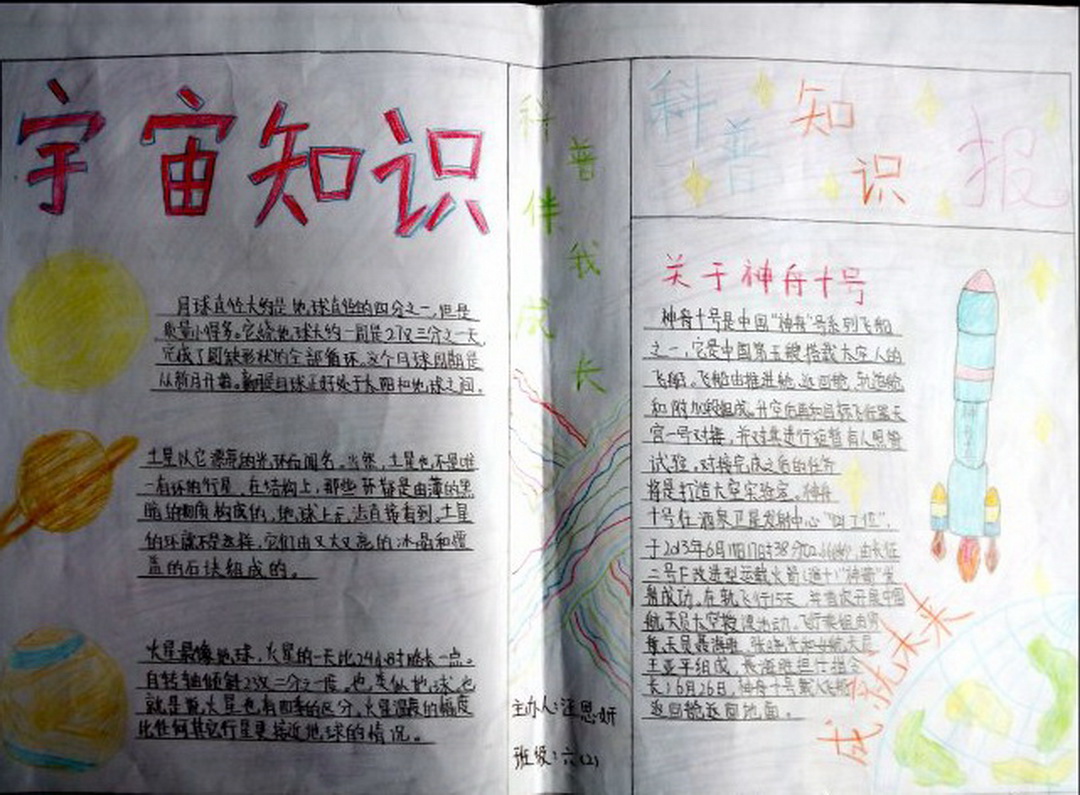 宇宙知识
月球直径大约是地球直径的四分之一,但是
质量小得多。它绕地球大约一周是27又三分之一天,
完成了圆缺形状的全部循环。这个月球周期是
从新月开始。新月月球正好处于太阳和地球之间。
土星以它漂亮的光环而闻名。当然,土星也不是唯
一有环的行星。在结构上,那些环都是由薄的黑
暗的物质构成的,地球上无法直接看到。土星
的环就不是这样,它们由又大又亮的冰晶和覆
盖的石块组成的。
火星最像地球,火星的一天比24小时略长一点。
自转轴倾斜23又二分之一度。也类似地球,也
就是说,火星也有四季的区分,火星温度的幅度
比任何其它行星更接近地球的情况。
科普伴我成长
主办人:汪思妍
班级:六(2)
科普知识报
关于神舟十号
神舟十号是中国“神舟”号系列飞船
之一,它是中国第五艘搭载太空人的
飞船。飞船由推进舱、返回舱、轨道舱
和附加段组成。升空后再和目标飞行器天
宫一号对接,并对其进行短暂有人照管
试验。对接完成之后的任务
将是打造太空实验室。神舟
十号在酒泉卫星发射中心“921工位”,
于2013年6月11日17时38分02.666秒,由长征
二号F改进型运载火箭(遥十)“神箭”发
射成功。在轨飞行15天,并首次开展中国
航天员太空授课活动。飞行乘组由男
航天员聂海胜、张晓光和女航天员
王亚平组成,聂海胜担任指令
长。6月26日,神舟十号载人飞船
返回舱返回地面。
成就未来